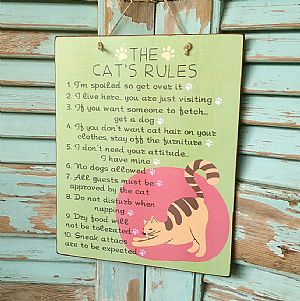 THE
CAT'S RULES
1. I'm spoiled so get over it
2. I live here.. you are just visiting
3. If you want someone to fetch...
get a dog
4. If you don't want cat hair on your
clothes, stay off the furniture
5. I don't need your attitude..
I have mine
6. No dogs allowed
7. All guests must be
approved by the cat
8. Do not disturb when
napping
9. Dry food will
not be tolerated
10. Sneak attacs
are to be expected